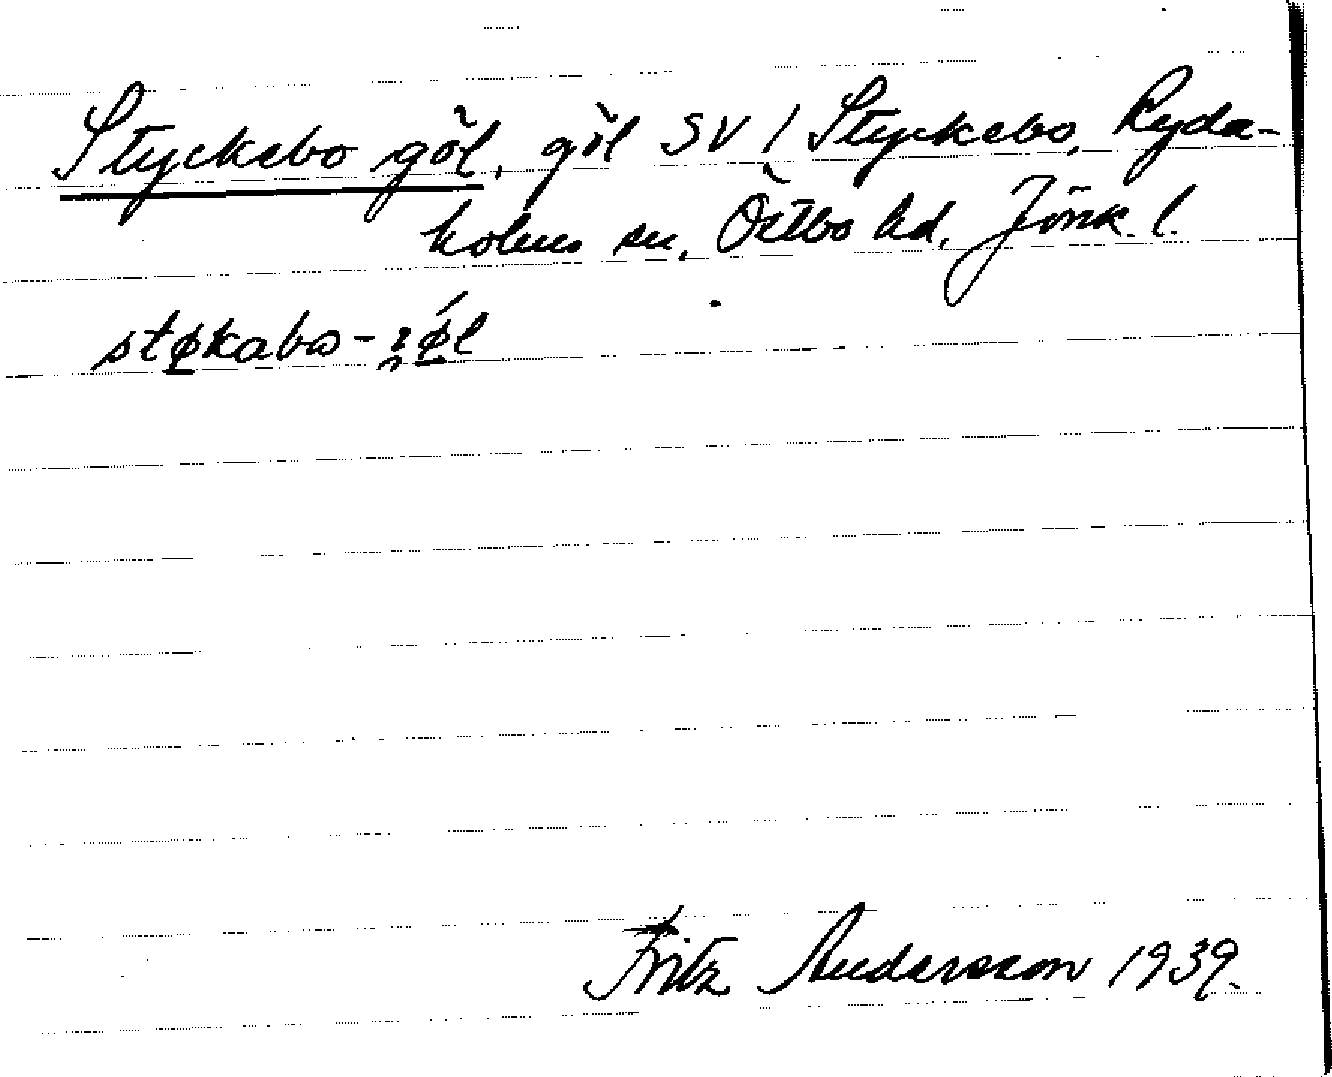 Styckebo göl, göl SV / Styckebo, Ryda-
holms sn, Östbo hd, Jönk. l.
støkabo-
Fritz Andersson 1939.